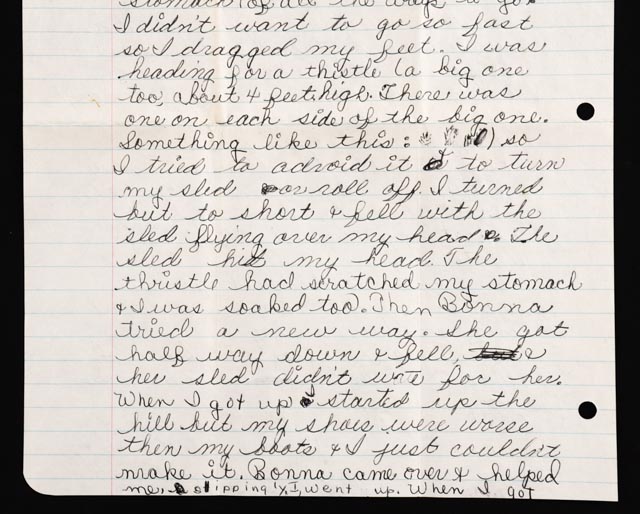 stomach (of all the ways to go.
I didn't want to go so fast
so I dragged my feet. I was
heading for a thistle (a big one
too, about 4 feet high. There was
one on each side of the big one.
Something like this: ) so
I tried to advoid it to turn
my sled or roll off. I turned
but to short & fell with the
sled flying over my head. The
sled hit my head. The
thristle had scratched my stomach
& I was soaked too). Then Bonna
tried a new way. She got
half way down & fell, &
her sled didn't wate for her.
When I got up I started up the
hill but my shoes were worse
then my boots & I just couldn't
make it. Bonna came over & helped
me, slippingly, I went up. When I got